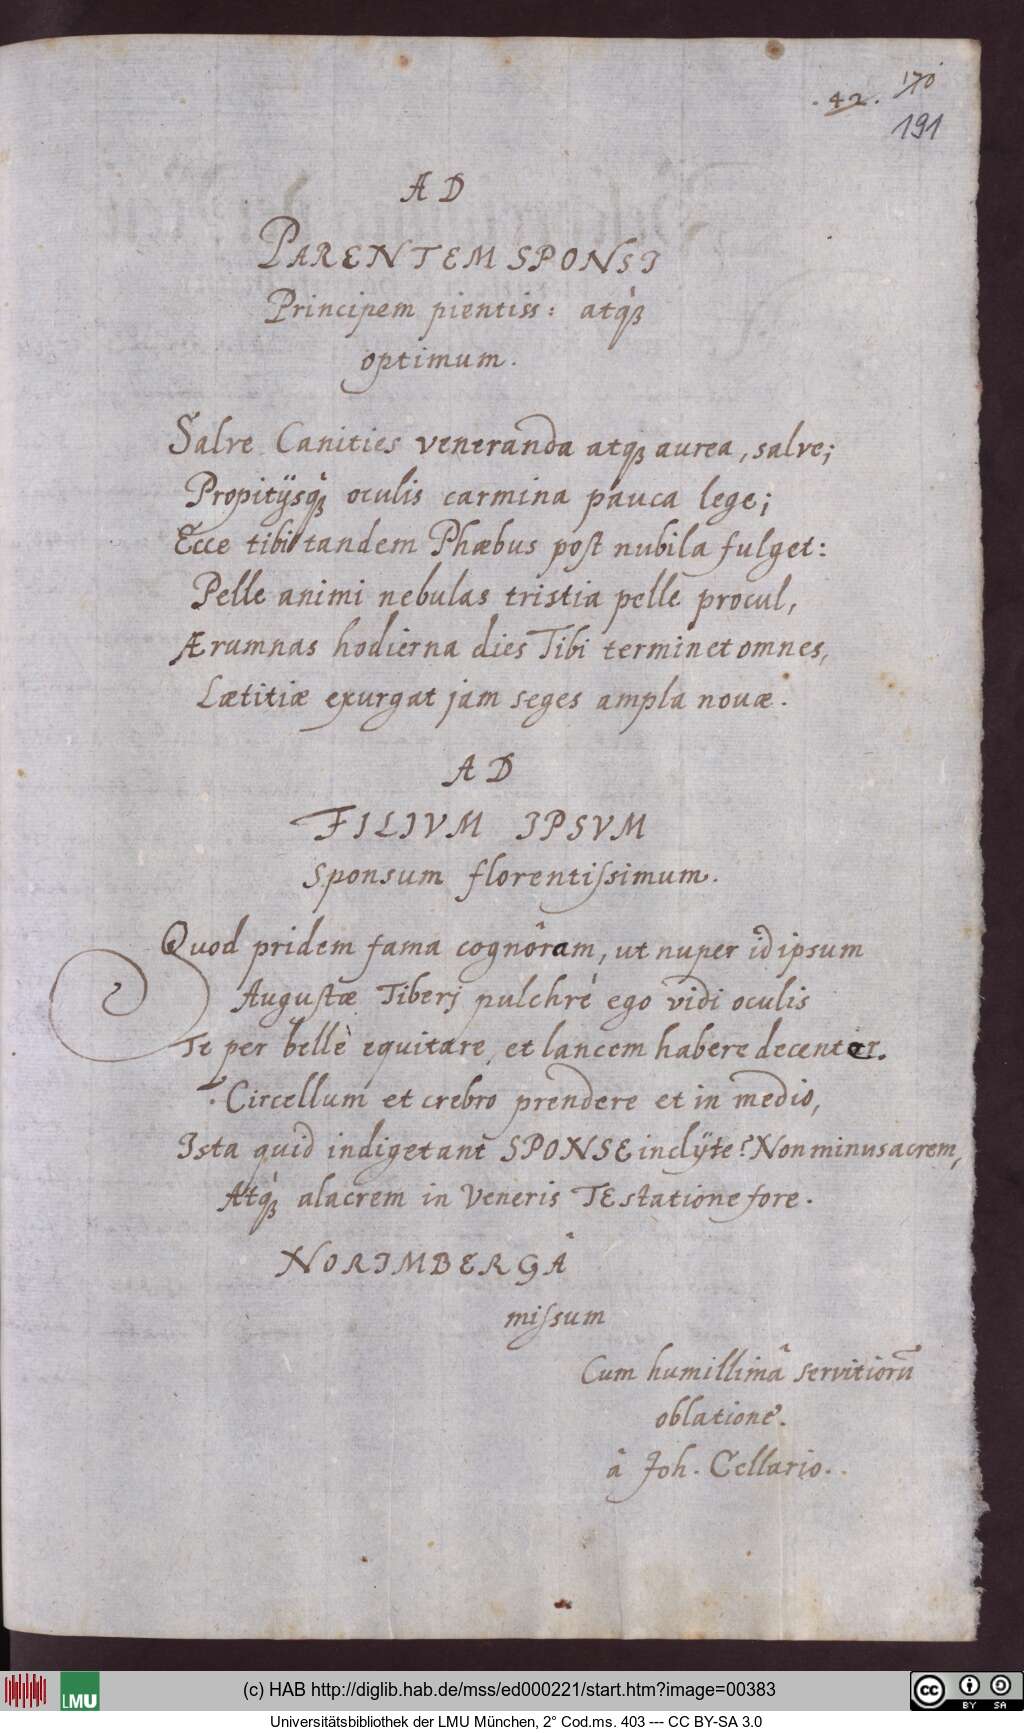 .42. 170
191
AD
PARENTEM SPONSI
Principem pientiss: atq́ꝫ
optimum.
Salve Canities veneranda atqꝫ aurea, salve;
Propitijsq́ꝫ oculis carmina pauca lege;
Ecce tibi tandem Phæbus post nubila fulget:
Pelle animi nebulas tristia pelle procul,
Ærumnas hodierna dies Tibi terminet omnes,
Lætitiæ exurgat jam seges ampla nouæ.
AD
FILIVM IPSVM
Sponsum florentissimum.
Quod pridem fama cognôram, ut nuper id ipsum
Augustæ Tiberj pulchrè ego vidi oculis
Te per bellè equitare, et lancem habere decenter.
Circellum et crebro prendere et in medio,
Ista quid indigetant SPONSE inclÿte? Non minus acrem,
Atq́ꝫ alacrem in Veneris TE statione fore.
NORIMBERGÂ
missum
Cum humillimâ servitiorū
oblatione.
â Joh. Cellario.
(c) HAB http://diglib.hab.de/mss/ed000221/start.htm?image=00383
LMU
cc BY SA
Universitätsbibliothek der LMU München, 2° Cod.ms. 403 --- CC BY-SA 3.0